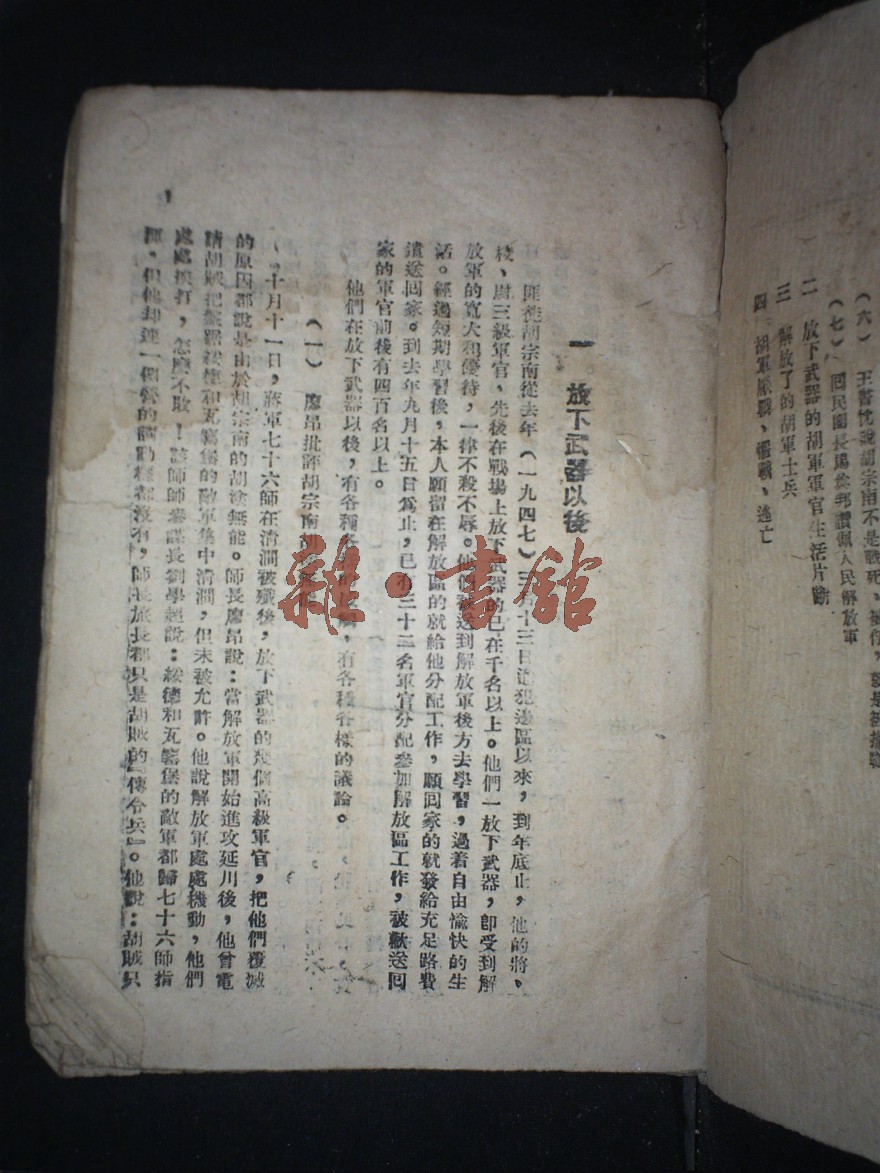 (六) 王晉忱說胡宗南不是戰死、被俘，就是
(七) 回民團長馬 讚佩人民解放軍
二 放下武器的胡軍軍官生活片斷
三 解放了的胡軍士兵
四 胡軍厭戰、懼戰、逃亡
一 放下武器以後
匪徒胡宗南從去年(一九四七)三月十三日進犯邊區以來，到年底止，他的將、
校、尉三級軍官，先後在戰場上放下武器的已在千名以上。他們一放下武器，卽受到解
放軍的寬大和優待，一律不殺不辱。他們被送到解放軍後方去學習，過着自由愉快的生
活。經過短期學習後，本人願留在解放區的就給他分配工作，願回家的就發給充足路費
遣送回家。到去年九月十五日爲止，已有三十三名軍官分配參加解放區工作，被歡送回
家的軍官前後有四百名以上。
他們在放下武器以後，有各種各樣的 ，有各種各樣的議論。
(一) 廖昂批評胡宗南胡
十月十一日，蔣軍七十六師在清澗被殲後，放下武器的幾個高級軍官，把他們覆滅
的原因都說是由於胡宗南的胡塗無能。師長廖昂說：當解放軍開始進攻延川後，他曾電
請胡賊把盤踞綏德和瓦窰堡的敵軍集中清澗，但未被允許。他說解放軍處處機動，他們
處處挨打，怎麽不敗！該師師參謀長劉學超說：綏德和瓦窰堡的敵軍都歸七十六師指
揮，但他却連一個營的調動權都沒有，師長旅長都只是胡賊的「傳令兵」。他說：胡賊只
1
雜·書館